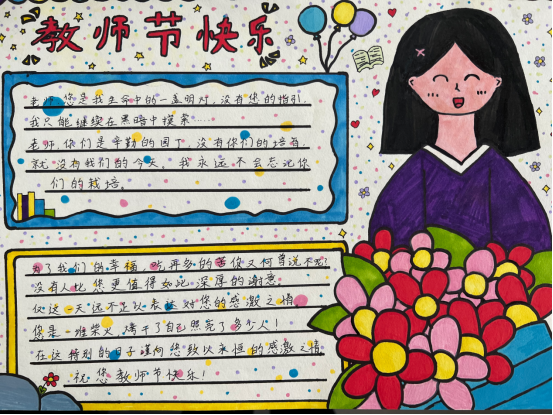 教师节快乐
老师,您是我生命中的一盏明灯,没有您的指引,
我只能继续在黑暗中摸索…
老师,你们是辛勤的园丁,没有你们的培育,
就没有我们的今天。我永远不会忘记你
们的栽培。
为了我们的幸福,吃再多的苦您又何曾说不呢?
没有人比您更值得如此深厚的谢意。
仅这一天远不足以表达对您的感激之情。
您是一堆柴火,烤干了自己照亮了多少人!
在这特别的日子谨向您致以永恒的感激之情
祝您教师节快乐!